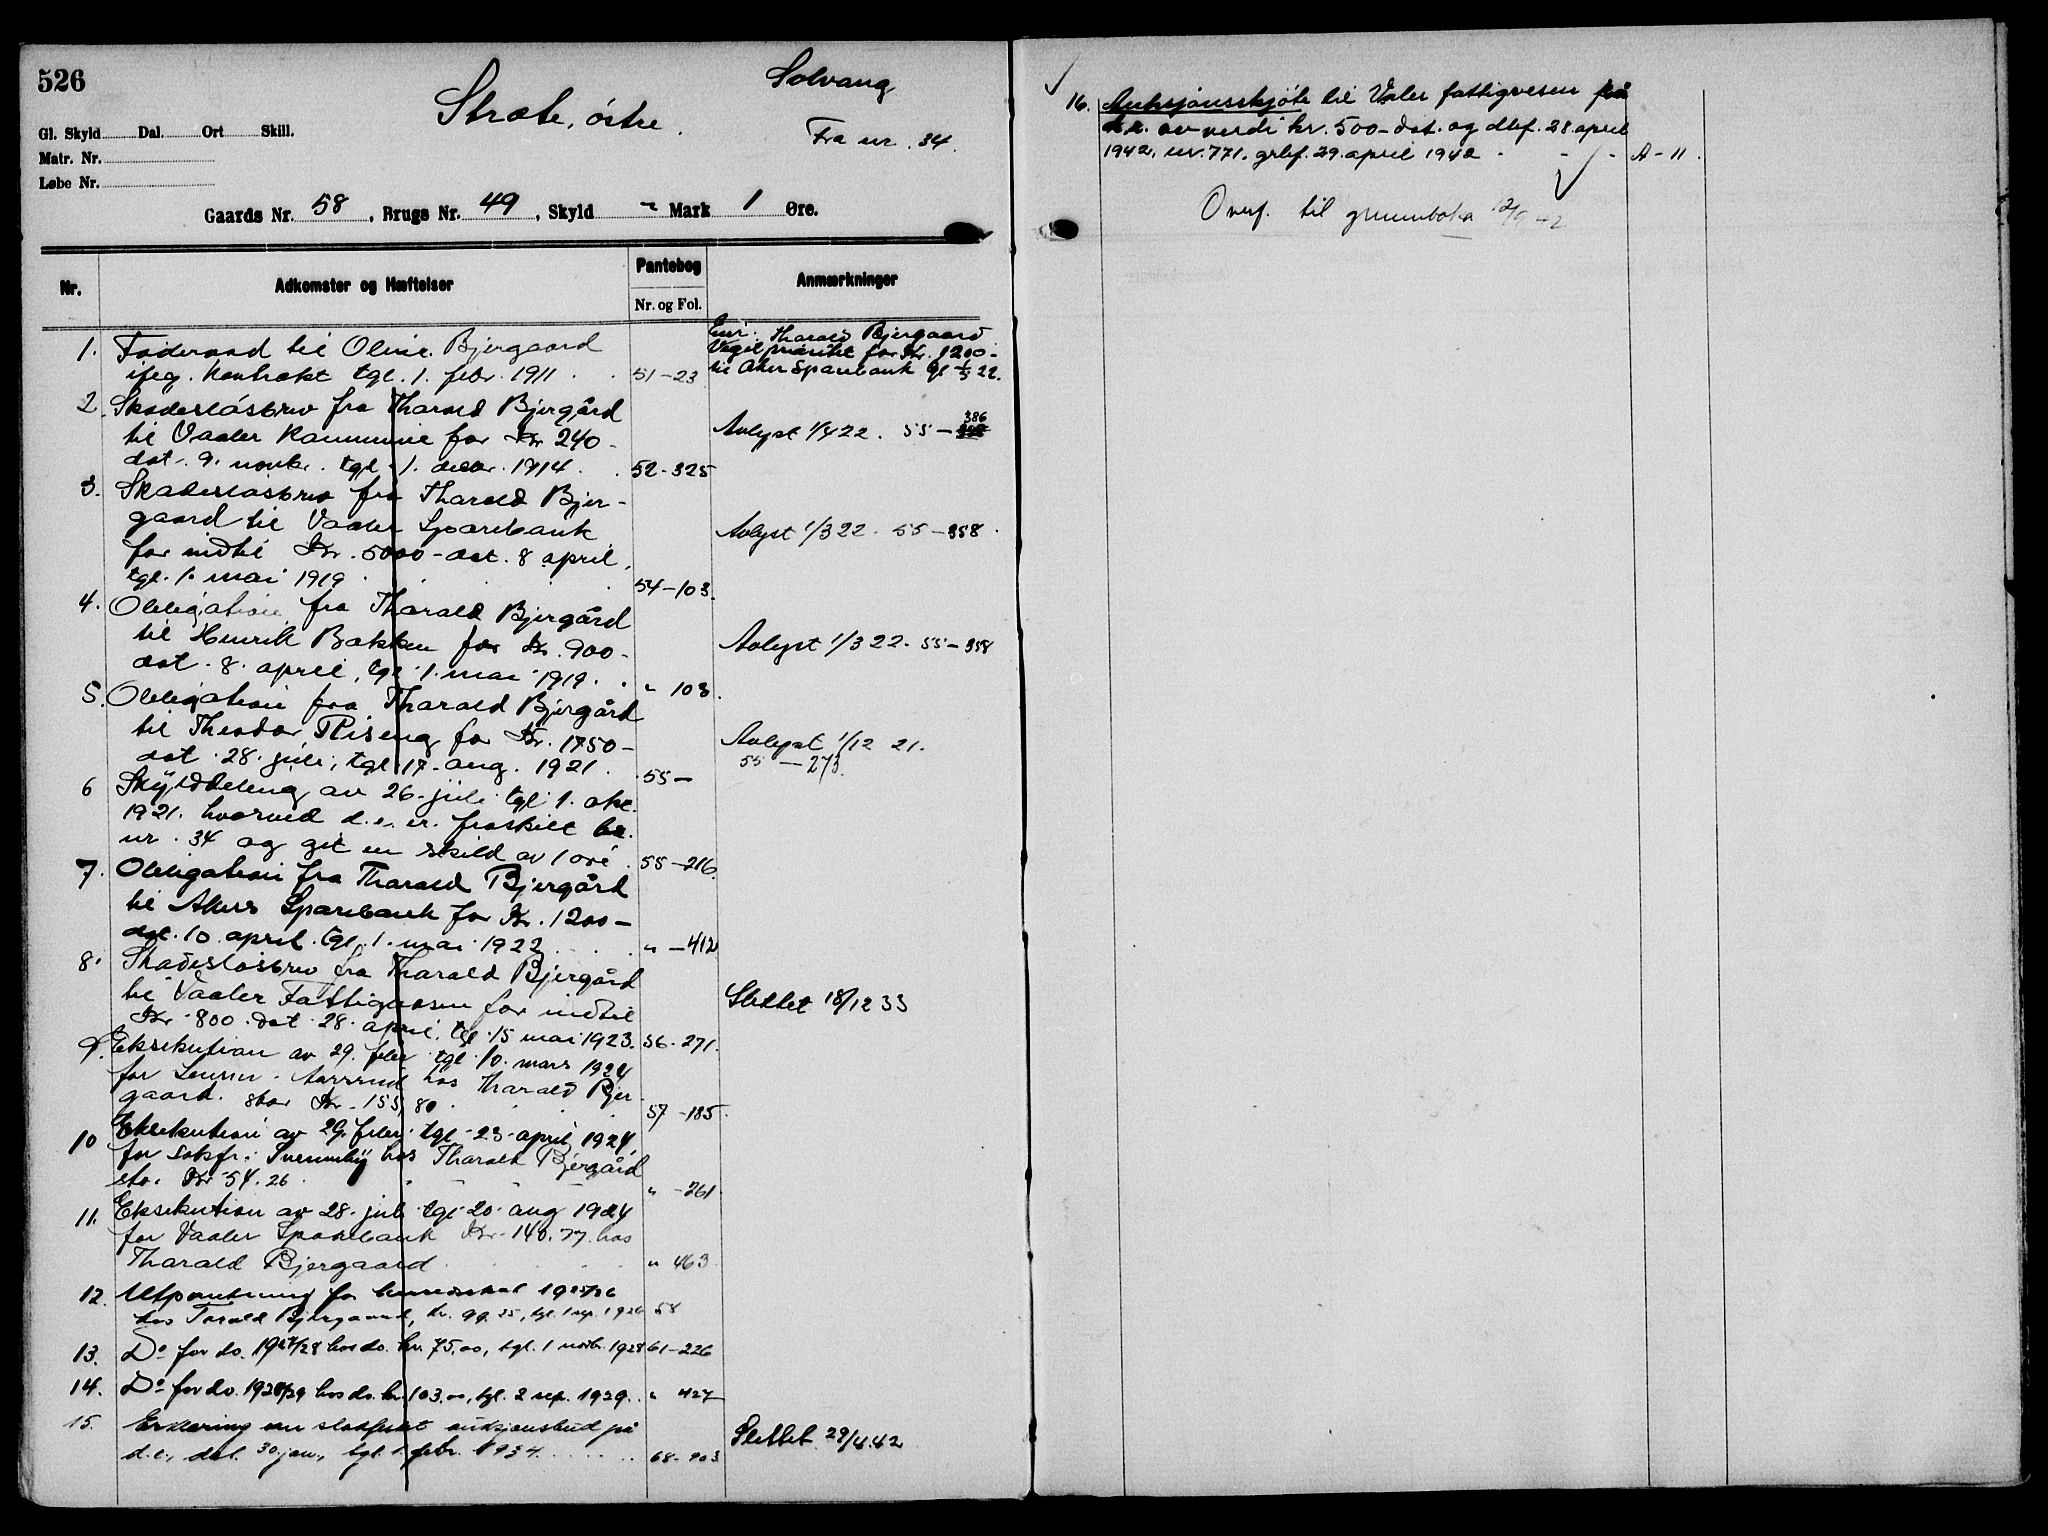 526
Solvang
Stræte, östre.
Fra nr. 34.
Gl. Skyld Dal. Ort Skill.
Matr. Nr.
Løbe Nr.
Gaards Nr. 58, Brugs Nr. 49, Skyld " Mark 1 Øre.
Nr. Adkomster og Hæftelser Pantebog Anmærkninger
Nr. og Fol.
1. Föderaad til Oline Bjergaard
ifög. Kontrakt tgl. 1. febr. 1911 . . 51-23
Tharald Bjergaard
Vigil prioritet for Kr. 1200-
til Aker Sparebank tgl 1/5 22.
2. Skadeslösbrev fra Tharald Bjergård
til Vaaler Kommune for Kr 240-
dat. 9. novbr. tgl. 1. decbr. 1914. . 52-325
Avlyst 1/4 22. 55-386
3. Skadeslösbrev fra Tharald Bjer-
gaard til Vaaler Sparebank
for indtil Kr. 5000- dat. 8 april,
tgl. 1. mai 1919 . . . 54-103.
Avlyst 1/3 22. 55-358.
4. Obligation fra Tharald Bjergård
til Henrik Bakken for Kr. 900-
dat. 8. april, tgl. 1. mai 1919. . " 103.
Avlyst 1/3 22. 55-358
5. Obligation fra Tharald Bjergård
til Theodor Riseng for Kr. 1750-
dat. 28. juli, tgl 17. aug. 1921. 55-
Avlyst 1/12 21.
55-273.
6 Skylddeling av 26. juli tgl. 1. okt.
1921. hvorved d.e. er fraskilt br.
nr. 34 og git en skyld av 1 öre . 55-216.
7. Obligation fra Tharald Bjergård
til Akers Sparebank for Kr. 1200-
dat. 10. april. tgl. 1. mai 1922 . . . " -412
8. Skadeslösbrev fra Tharald Bjergård
til Vaaler Fattigvæsen for indtil
Kr. 800. dat. 28. april, tgl. 15 mai 1923. 56-271.
Slettet 18/12 33
9. Eksekution av 29. febr. tgl. 10. mars 1924
for Lensm. hos Tharald Bjer-
gaard. stor Kr. 155,80 . . . 57-185.
10 Eksekution av 29. febr. tgl. 23. april 1924
for hos Tharald Bjergård
stor Kr 54.26 . . . " -261.
11. Eksekution av 28. juli tgl. 20. aug 1924
for Vaaler Sparebank Kr. 140.77 hos
Tharald Bjergaard . . . " 463
12. Utpantning for 1925/26
hos Tarald Bjergaard, kr. 99.25, tgl. 1 sep. 1926 58
13. Do for do. 1927/28 hos do. kr. 75,00, tgl. 1 novbr. 1928 61-226
14. Do for do. 1928/29 hos do. kr. 103,00, tgl. 2 sep. 1929. . " 427
15. Erklæring om stadfestet auksjonsbud på
d.e., dat. 30 jan., tgl. 1. febr. 1934. . . . 68-903
Slettet 29/4.42
16. Auksjonsskjöte til Våler fattigvesen på
d.e. av verdi kr. 500- dat. og dbf. 28. april
1942, nr. 771. grbf. 29. april 1942 - - - A-11.
Overf. til grunnboka